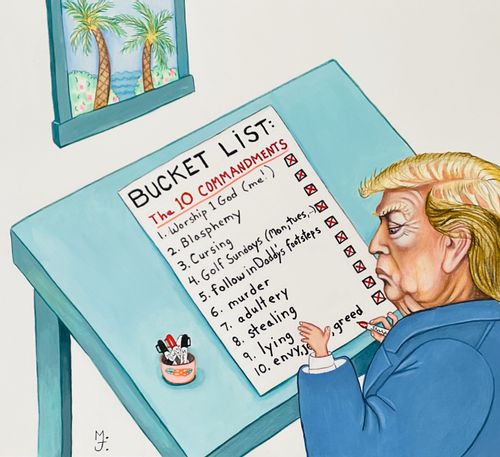 BUCKET LIST:
The 10 COMMANDMENTS
1. Worship 1 God (me!)
2. Blasphemy
3. Cursing
4. Golf Sundays (Mon, tues,..)
5. follow in Daddy's footsteps
6. murder
7. adultery
8. stealing
9. lying
10. envy, greed